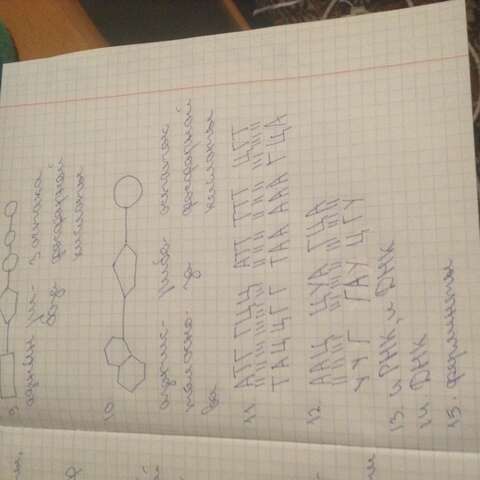 9.
аденин ри- 3 остатка
боза фосфорной
кислоты
10.
азотис- рибо- остаток
то осно- за фосфорной
ва кислоты
11. АТГ ГЦЦ АТТ ТТТ ЦГТ
ТАЦ ЦГГ ТАА ААА ГЦА
12. ААЦ ЦУА ГЦА
УУГ ГАУ ЦГУ
13. и РНК, и ДНК
14. ДНК
15. ферменты